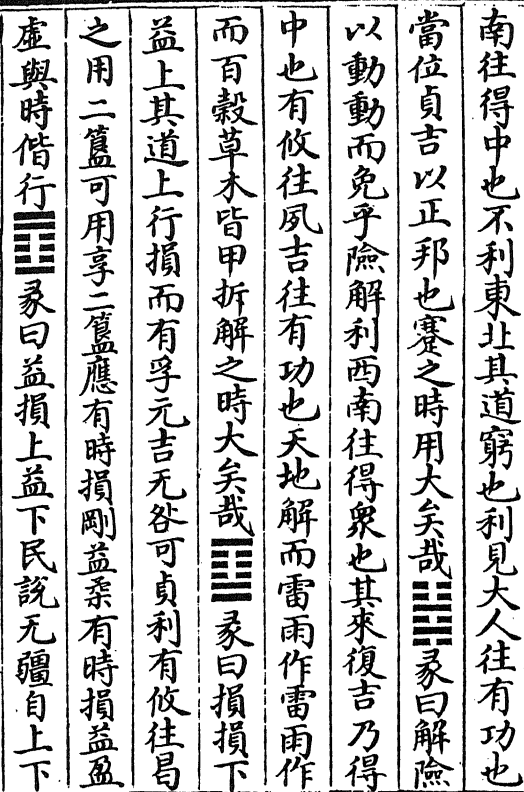 南往得中也不利東北其道窮也利見大人往有功也
當位貞吉以正邦也蹇之時用大矣哉䷧彖曰解險
以動動而免乎險解利西南往得衆也其來復吉乃得
中也有攸往夙吉往有功也天地解而雷雨作雷雨作
而百穀草木皆甲拆解之時大矣哉䷨彖曰損損下
益上其道上行損而有孚元吉无咎可貞利有攸往曷
之用二簋可用享二簋應有時損剛益柔有時損益盈
虛與時偕行䷩彖曰益損上益下民說无疆自上下